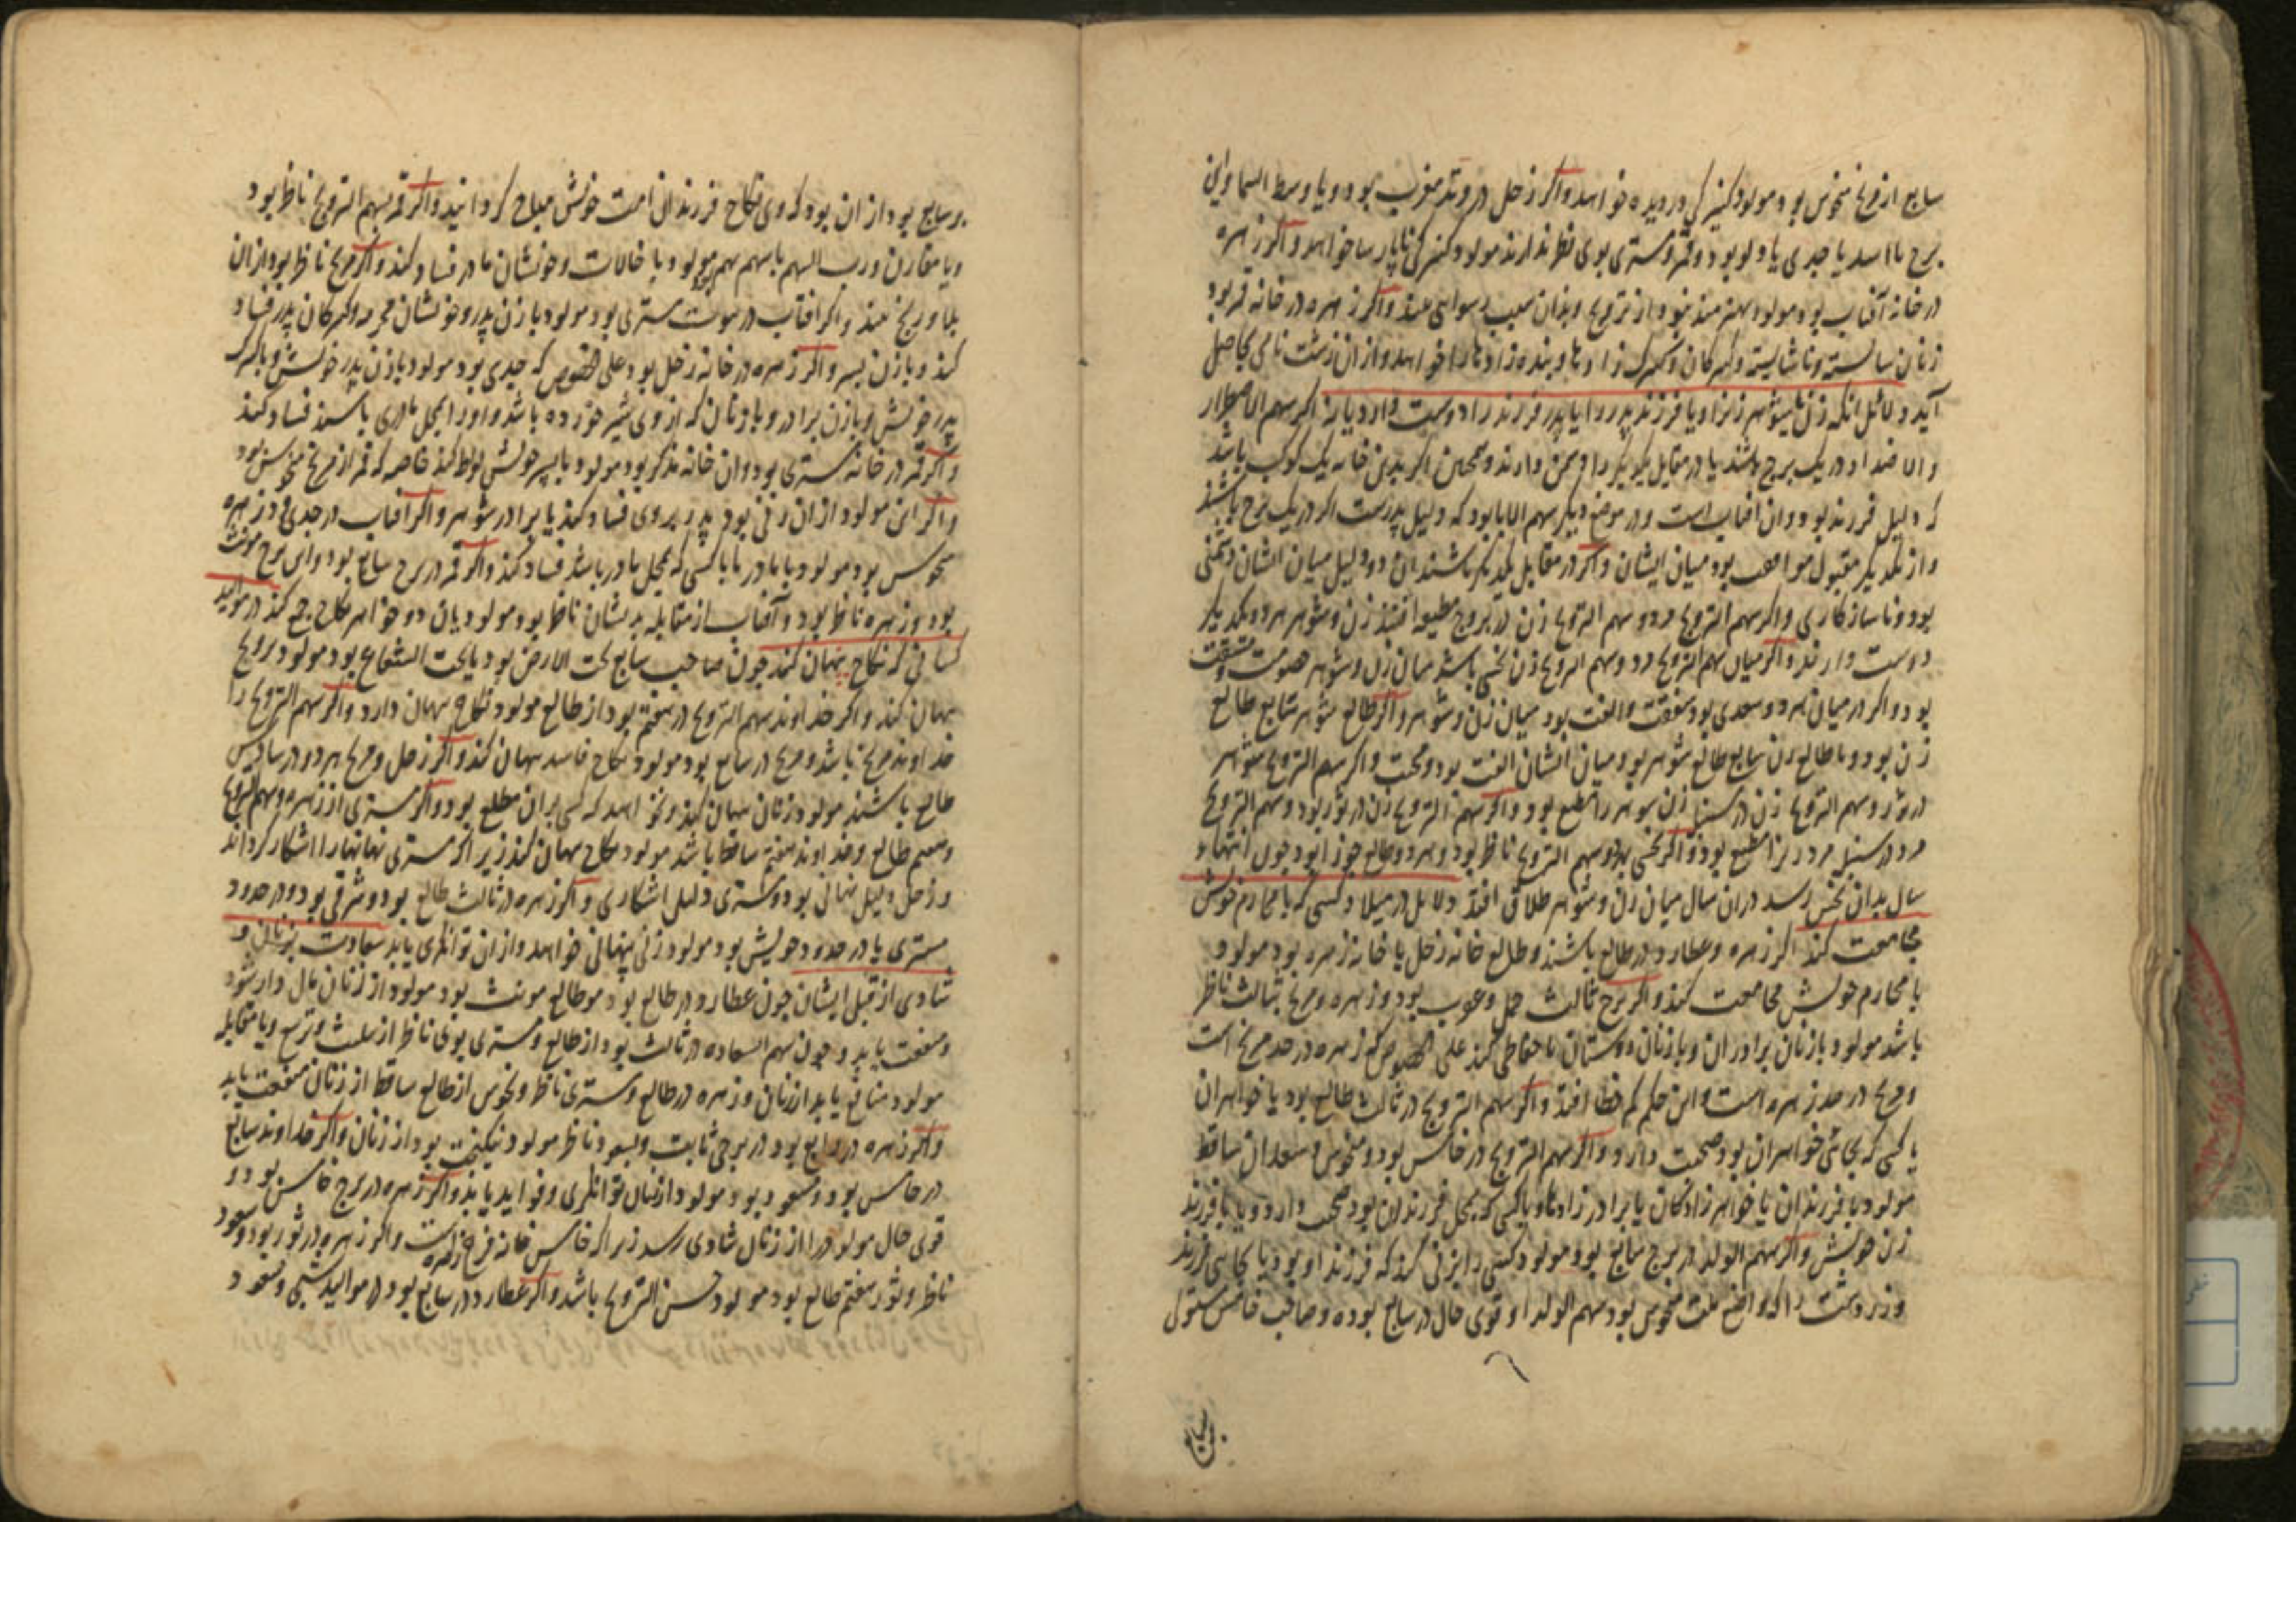 سابع از مریخ منحوس بود مولود کنیزکی دزدیده خواهد واکر زحل در وتد مغرب بود و یا وسط السما و این
برج یا اسد یا جدی یا دلو بود و قمر و مشتری بوی نظر ندارند مولود کنیزکی ناپارسا خواهد واکر زهره
در خانه آفتاب بود مولود بهره‌مند بود از تزویج و بدان سبب رسوایی بیند واکر زهره در خانه قمر بود
زنان شایسته و ناشایسته و کنیزکان و کنیزک زادها و بنده زادها را خواهد و از ان زشت نامی بحاصل
آید دلائل انکه زن یا شوهر زنرا و یا فرزند پدر را یا پدر فرزند را دوست دارد یا نه اکر سهم الاصطرار
که دلیل فرزند بود و ان افتاب است و در موضع دیکر سهم الابا بود که دلیل پدرست اکر در یک برج باشند
و از یکدیکر مقبول موافقت بود میان ایشان واکر در مقابل یکدیکر باشند ان دو دلیل میان ایشان دشمنی
بود و ناسازکاری واکر سهم التزویج مرد و سهم التزویج زن در بروج مطیعه افتند زن و شوهر هر دو یکدیکر
دوست دارند واکر میان سهم التزویج مرد و سهم التزویج زن نحسی باشد میان زن و شوهر خصومت و مشقت
بود و اکر در میان هر دو سعدی بود شفقت و الفت بود میان زن و شوهر واکر طالع شوهر سابع طالع
زن بود و یا طالع زن سابع طالع شوهر بود میان ایشان الفت بود و محبت واکر سهم التزویج شوهر
در ثور و سهم التزویج زن در سنبله زن شوهر را مطیع بود و اکر سهم التزویج زن در ثور بود و سهم التزویج
مرد در سنبله مرد زنرا مطیع بود و اکر نحسی بهر دو سهم التزویج ناظر بود و هر دو طالع جوزا بود چون انتهاء
سال بدان نحس رسد در ان سال میان زن و شوهر طلاق افتد دلایل در میلاد کسی که با محارم خویش
مجامعت کند اکر زهره و عطارد در طالع باشند و طالع خانه زحل یا خانه زهره بود مولود
با محارم خویش مجامعت کند واکر برج ثالث حمل و عقرب بود و زهره و مریخ بثالث ناظر
باشد مولود با زنان برادران و با زنان دوستان ناحفاظی کند علی الخصوص که زهره در حد مریخ است
و مریخ در حد زهره است و این حکم کم خطا افتد واکر سهم التزویج در ثالث طالع بود با خواهران
یا کسی که بجای خواهران بود صحبت دارد و اکر سهم التزویج در خامس بود و منحوس و سعدان ساقط
مولود با فرزندان یا خواهر زادکان یا برادر زادها و یا کسی که بمحل فرزندان بود صحبت دارد و یا با فرزند
زن خویش واکر سهم الولد در برج سابع بود مولود کسی را بزنی کند که فرزند او بود یا بجای فرزند
و زردشت را که واضع ملت مجوس بود سهم الولد او قوی حال در سابع بوده و صاحب خامس مستولی
بر سابع
بر سابع بود از ان بود که وی نکاح فرزندان امت خویش مباح کردانید واکر قمر بسهم التزویج ناظر بود
و یا مقارن و رب السهم با سهم بهم بود مولود با خالات و خویشان مادر فساد کند واکر مریخ ناظر بود از ان
بلا و رنج بیند واکر افتاب در بیوت مشتری بود مولود با زن پدر و خویشان محرمه و کنیزکان پدر فساد
کند و با زن پسر واکر زهره در خانه زحل بود علی الخصوص که جدی بود مولود با زن پدر خویش و با کنیزک
پدر خویش و با زن برادر و با زنان که از وی شیر خورده باشد و او را بمحل مادری باشند فساد کند
واکر قمر در خانه مشتری بود و ان خانه مذکر بود مولود با پسر خویش لواطه کند خاصه که قمر از مریخ منحوس بود
واکر این مولود از ان زنی بود پدر بر وی فساد کند یا برادر شوهر واکر افتاب در جدی و زهره
منحوس بود مولود با مادر یا با کسی که بمحل مادر باشد فساد کند واکر قمر در برج سابع بود و این برج مونث
بود و زهره ناظر بود و آفتاب از مقابله بدیشان ناظر بود مولود میان دو خواهر بنکاح جمع کند در موالید
کسانی که نکاح پنهان کنند چون صاحب سابع تحت الارض بود یا تحت الشعاع بود مولود تزویج
پنهان کند و اکر خداوند سهم التزویج در هفتم بود از طالع مولود نکاح پنهان دارد واکر سهم التزویج را
خداوند مریخ باشد و مریخ در سابع بود مولود نکاح فاسد پنهان کند واکر زحل و مریخ هر دو در سادس
طالع باشند مولود زنان پنهان کند و نخواهد که کسی بر ان مطلع بود واکر مشتری از زهره و سهم التزویج
و هفتم طالع و خداوند هفتم ساقط باشد مولود نکاح پنهان کند زیرا که مشتری نهانیها را اشکار کرداند
و زحل دلیل نهانی بود و مشتری دلیل اشکاری واکر زهره در ثالث طالع بود و شرقی بود و در حدود
مشتری یا در حدود خویش بود مولود زنی پنهانی خواهد و از ان توانکری یابد سعادت بزنان و
شادی از قبل ایشان چون عطارد در طالع بود و طالع مونث بود مولود از زنان مال دار شود
و منفعت یابد و چون سهم السعاده در ثالث بود از طالع و مشتری بوی ناظر از تثلیث و تربیع و یا مقابله
مولود منافع یابد از زنان و زهره در طالع و مشتری ناظر و نحوس از طالع ساقط از زنان منفعت یابد
واکر زهره در رابع بود در برجی ثابت و بسعود ناظر مولود نیکبخت بود از زنان واکر خداوند سابع
در خامس بود و مسعود بود مولود از زنان توانکری و فواید یابد واکر زهره در برج خامس بود و
قوی حال مولود را از زنان شادی رسد زیرا که خامس خانه فرح زهره است واکر زهره در ثور بود و مسعود
ناظر و ثور هفتم طالع بود مولود حسن التزویج باشد واکر عطارد در سابع بود در موالید شبی و مسعود